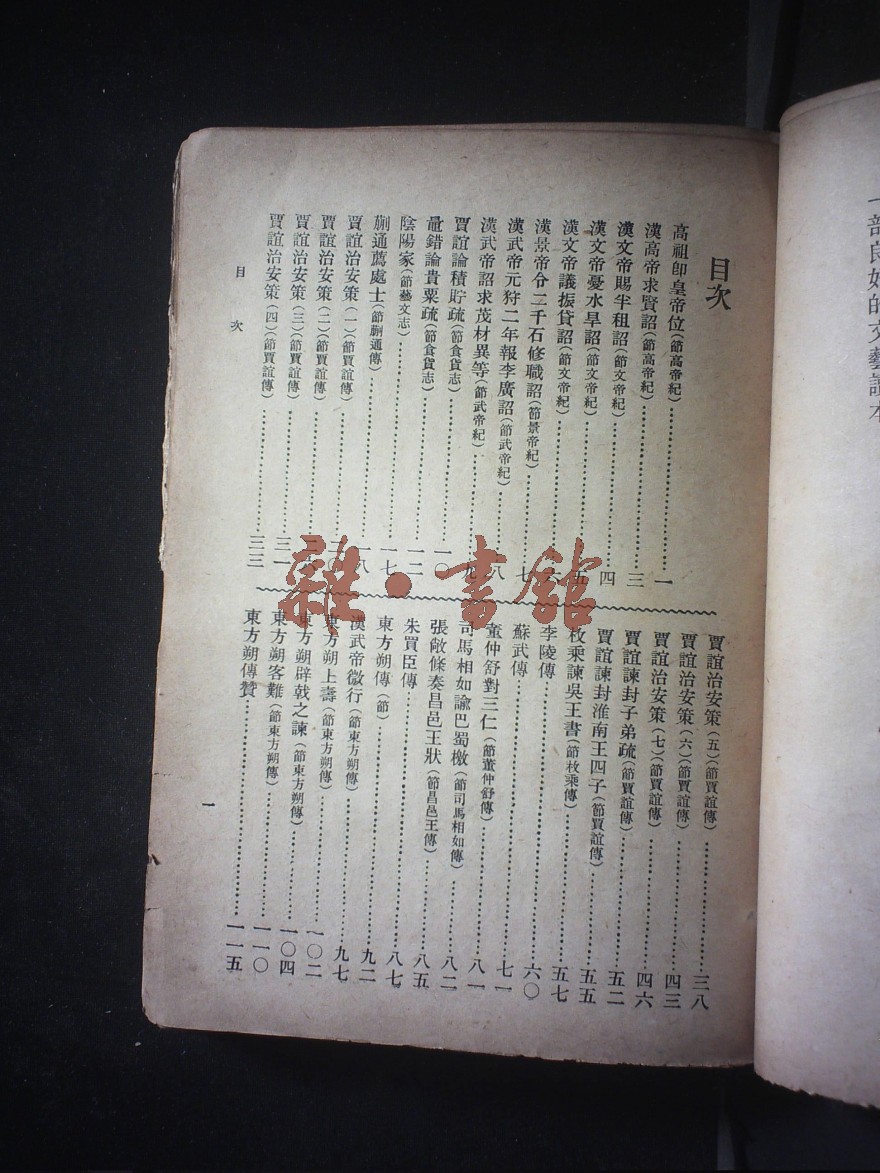 一部良好的文藝讀本
目次
高祖卽皇帝位(節高帝紀)一
漢高帝求賢詔(節高帝紀)三
漢文帝賜半租詔(節文帝紀)四
漢文帝憂水旱詔(節文帝紀)五
漢文帝議振貸詔(節文帝紀)
漢景帝令二千石修職詔(節景帝紀)七
漢武帝元狩二年報李廣詔(節武帝紀)八
漢武帝詔求茂材異等(節武帝紀)九
賈誼論積貯疏(節食貨志)一〇
鼂錯論貴粟疏(節食貨志)一二
陰陽家(節藝文志)一七
蒯通薦處士(節蒯通傳)一八
賈誼治安策(一)(節賈誼傳)
賈誼治安策(二)(節賈誼傳)
賈誼治安策(三)(節賈誼傳)三一
賈誼治安策(四)(節賈誼傳)三三
賈誼治安策(五)(節賈誼傳)三八
賈誼治安策(六)(節賈誼傳)四三
賈誼治安策(七)(節賈誼傳)四六
賈誼諫封子弟疏(節賈誼傳)五二
賈誼諫封淮南王四子(節賈誼傳)五五
枚乘諫吳王書(節枚乘傳)五七
李陵傳六〇
蘇武傳七一
董仲舒對三仁(節董仲舒傳)八一
司馬相如諭巴蜀檄(節司馬相如傳)八二
張敞條奏昌邑王狀(節昌邑王傳)八五
朱買臣傳八七
東方朔傳(節)九二
漢武帝微行(節東方朔傳)九七
東方朔上壽(節東方朔傳)一〇二
東方朔辟戟之諫(節東方朔傳)一〇四
東方朔客難(節東方朔傳)一一〇
東方朔傳贊一一五
目次
一
雜·書館